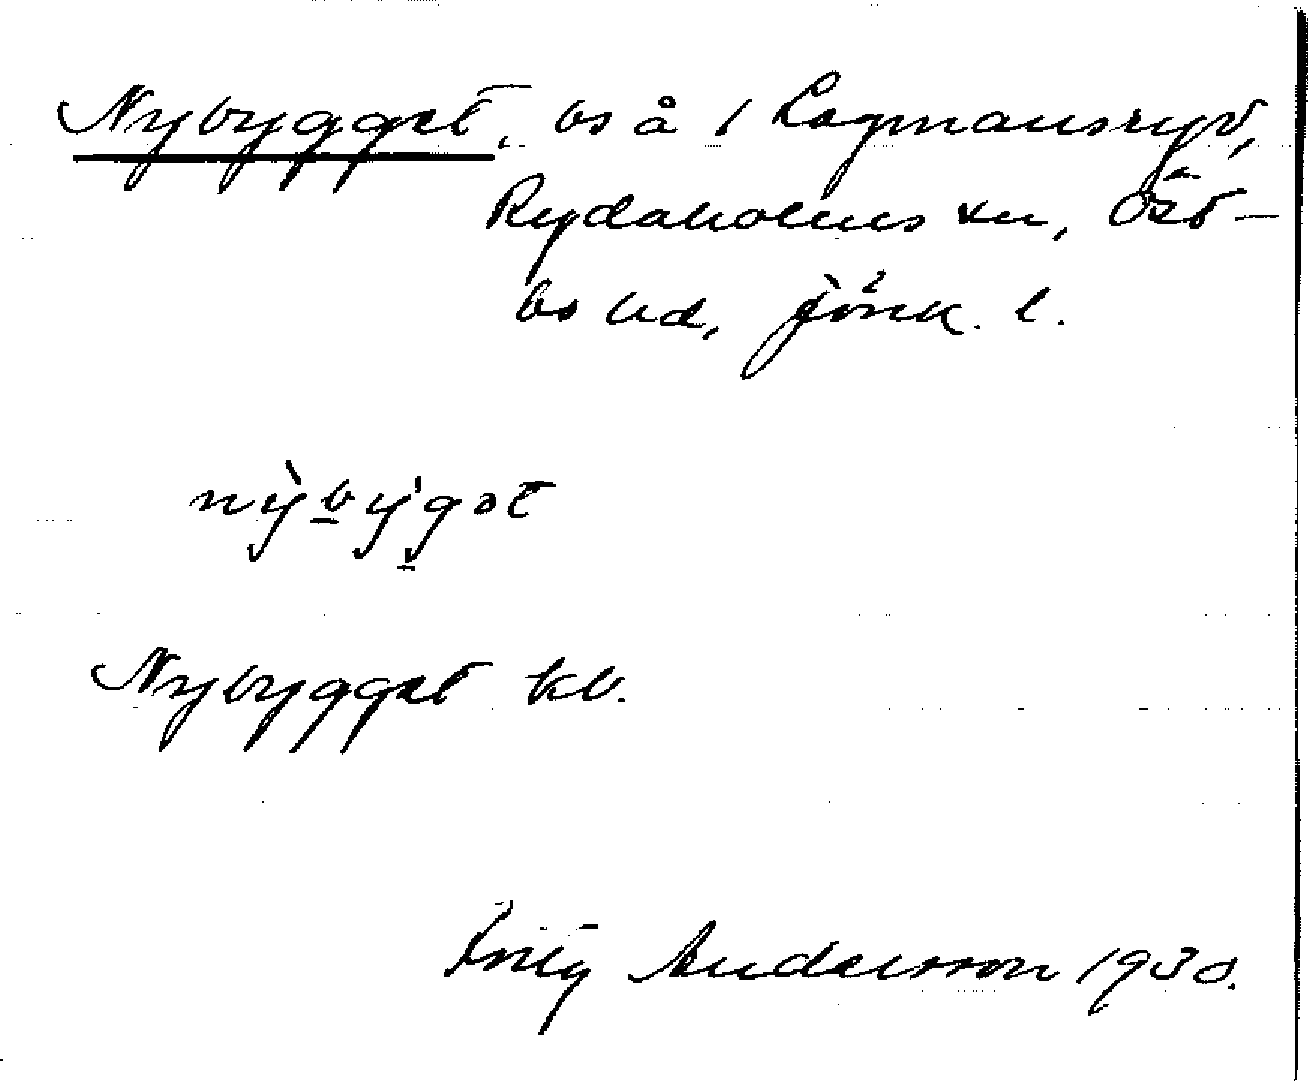 Nybygget, bs å 1 Lagmansryd,
Rydaholms sn, Öst-
bo hd, Jönk. l.
nỳbýgət
Nybygget kb.
Andersson 1930.